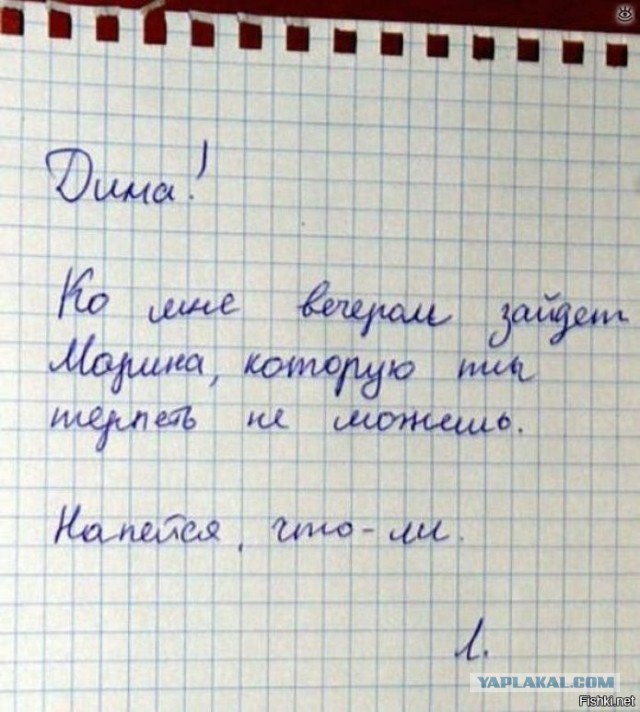 Дима!
Ко мне вечером зайдет
Марина, которую ты
терпеть не можешь.
Напейся, что-ли.
Л.
YAPLAKAL.COM
Fishki.net